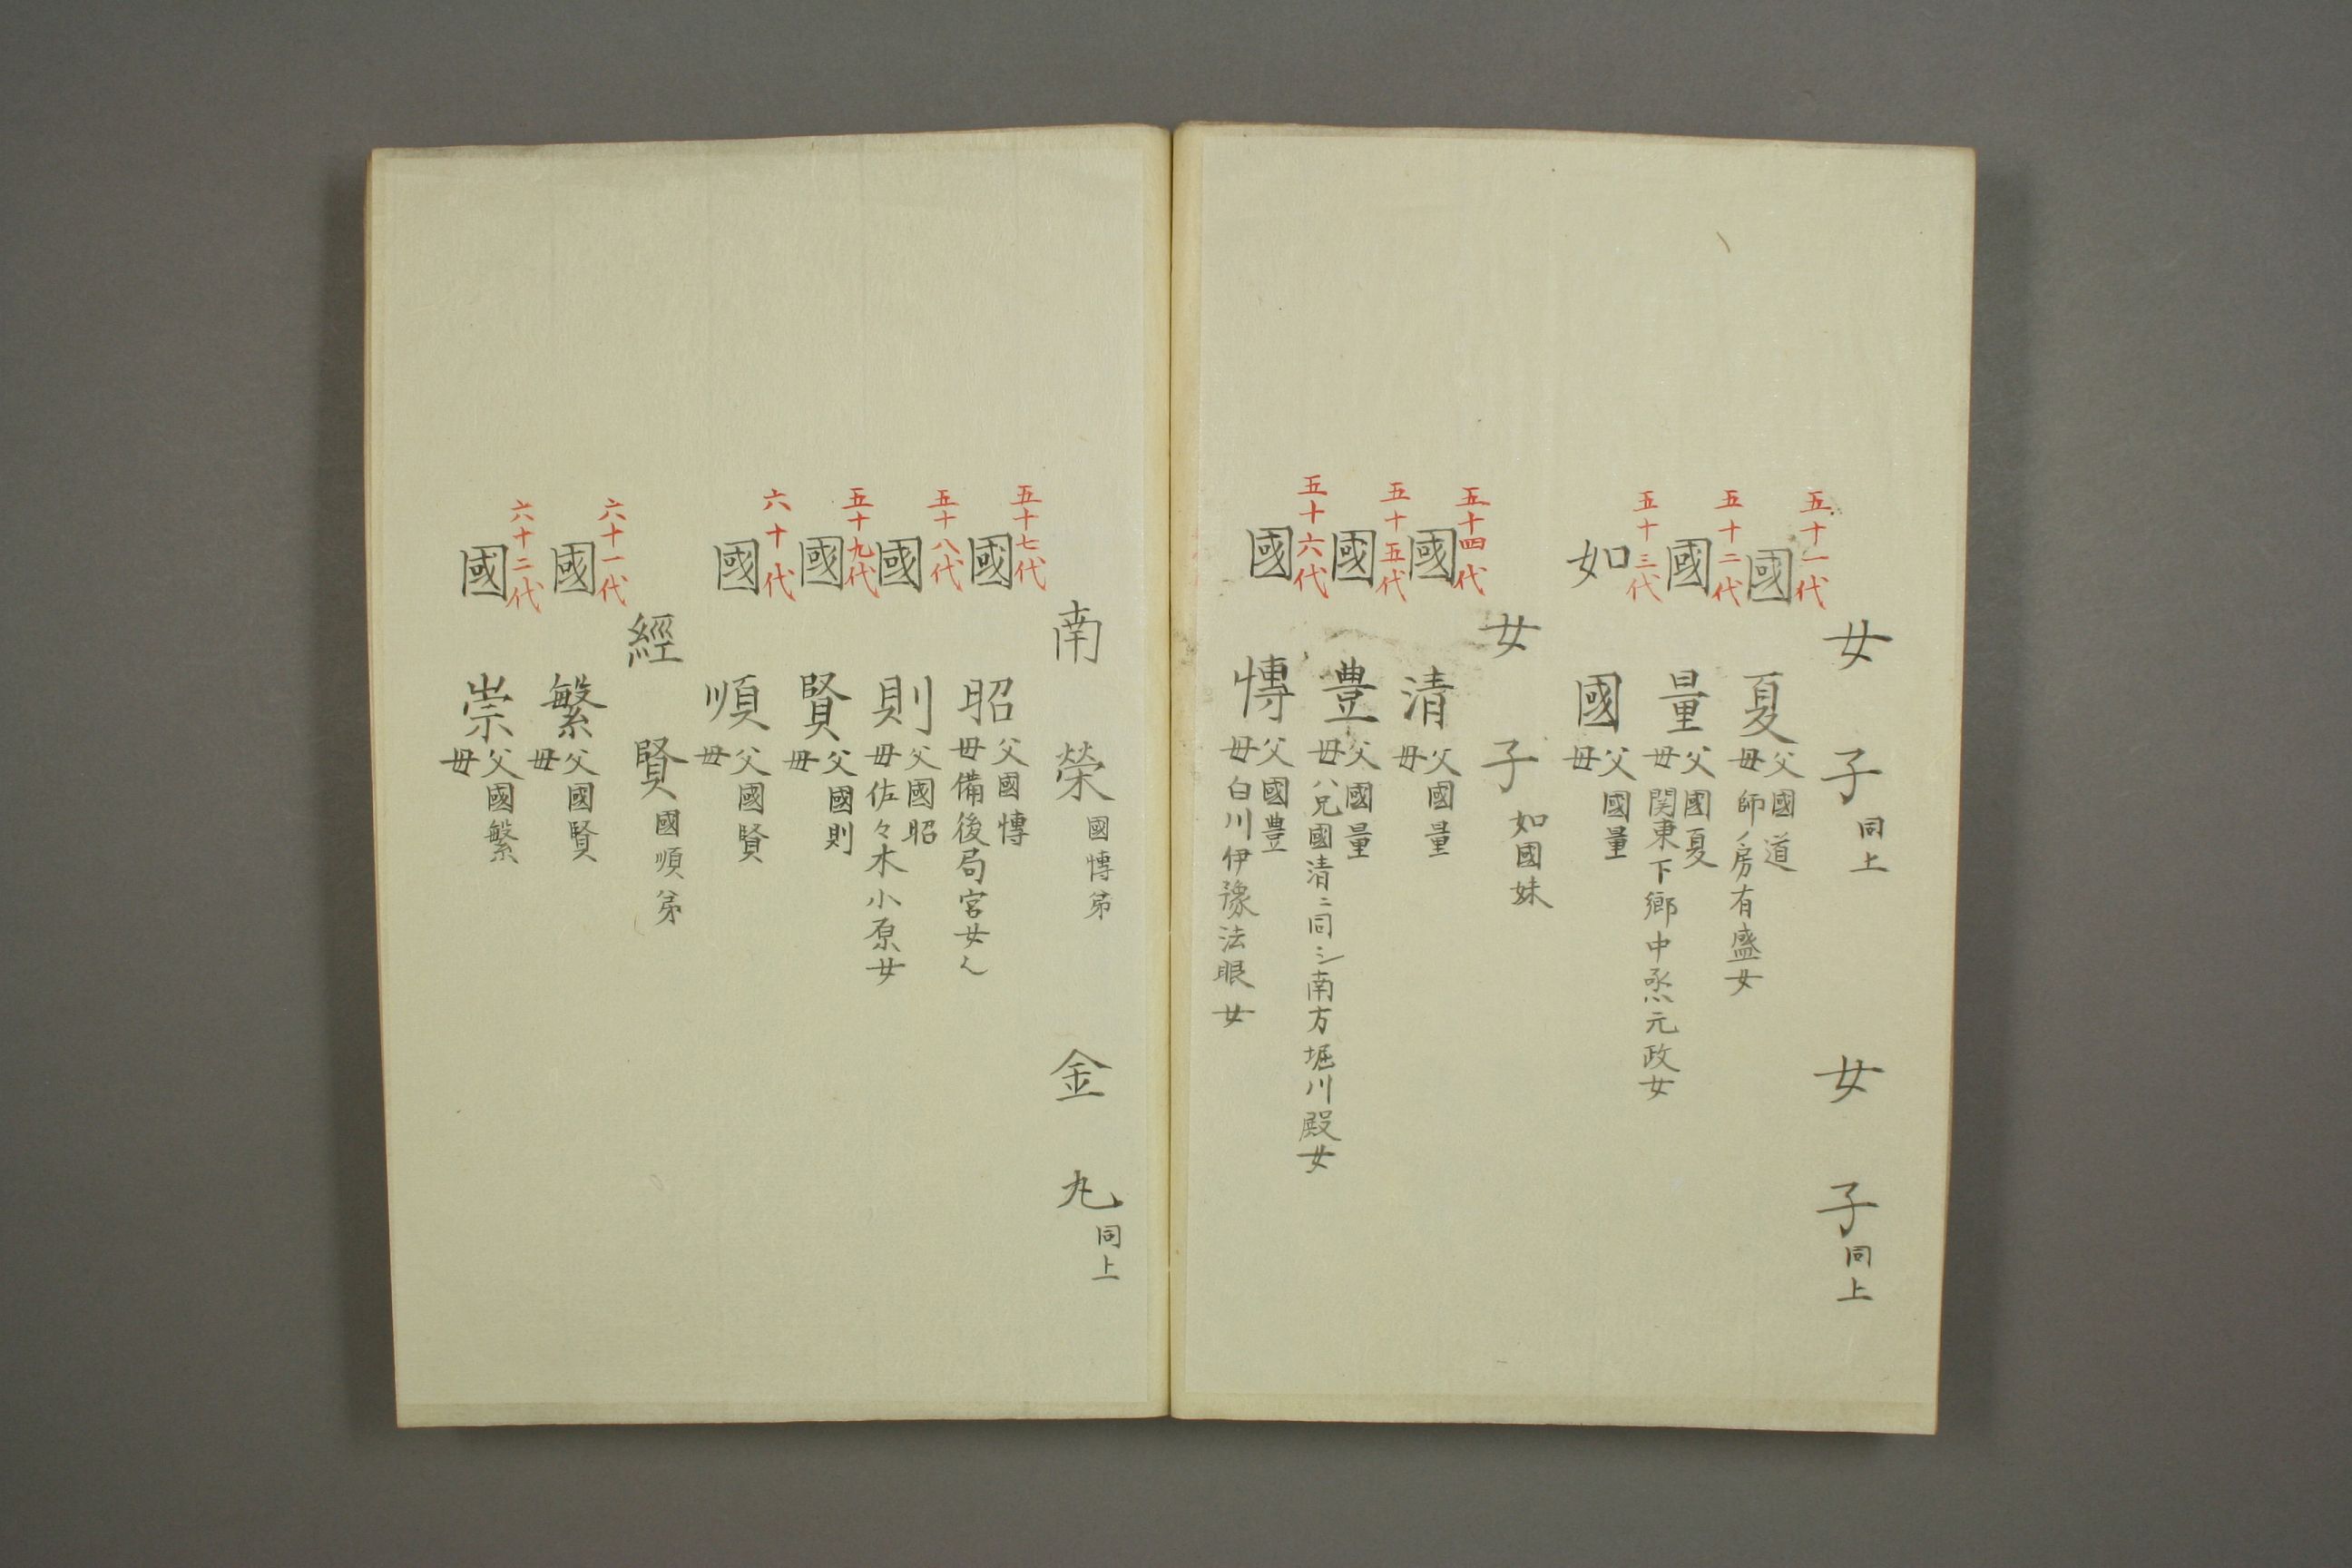 女子同上 女子同上
五十一代
國夏
父國道
母師ノ房有盛女
五十二代
國量
父國夏
母関東下郷中烝元政女
五十三代
如國
父國量
母
女子如國妹
五十四代
國清
父國量
母
五十五代
國豊
父國量
母ハ兄國清ニ同シ南方堀川殿女
五十六代
國慱
父國豊
母白川伊豫法眼女
南榮國慱弟 金丸同上
五十七代
國昭
父國慱
母備後局宮女人
五十八代
國則
父國昭
母佐々木小原女
五十九代
國賢
父國則
母
六十代
國順
父國賢
母
經賢國順弟
六十一代
國繁
父國賢
母
六十二代
國崇
父國繁
母